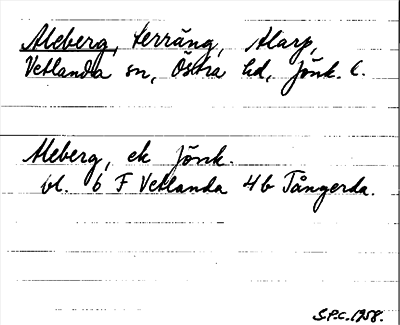 Aleberg, terräng, Alarp,
Vetlanda sn, Östra hd, Jönk. l.
Aleberg, ek Jönk.
bl. 6 F Vetlanda 4b Tångerda.
S.P.C. 1958.